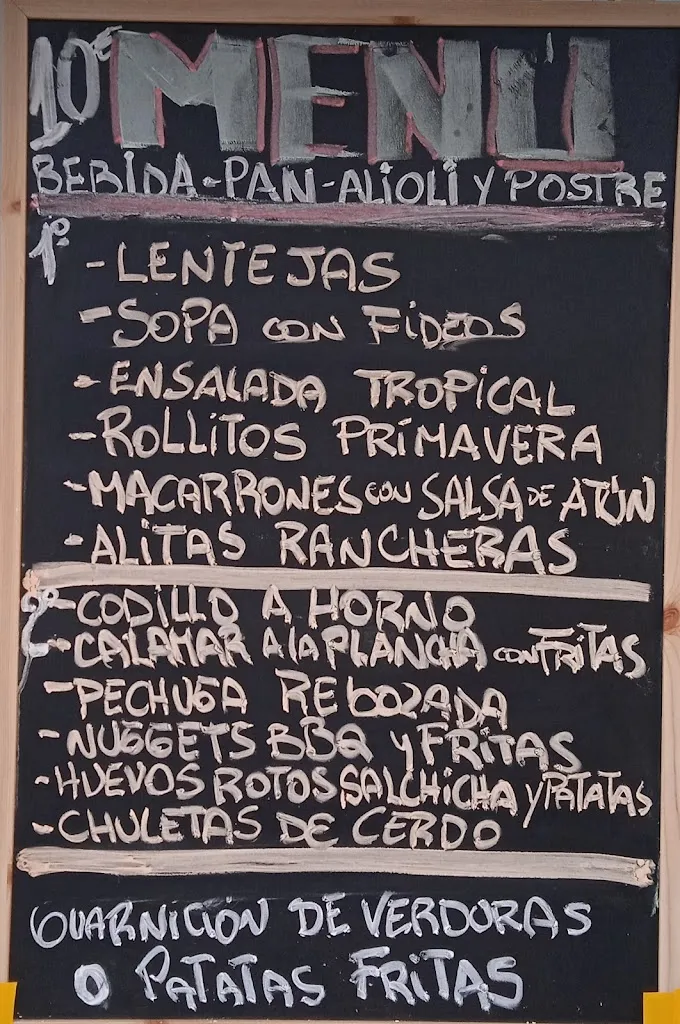 10€ MENÚ
BEBIDA - PAN - ALIOLI Y POSTRE
1º
- LENTEJAS
- SOPA CON FIDEOS
- ENSALADA TROPICAL
- ROLLITOS PRIMAVERA
- MACARRONES CON SALSA DE ATÚN
- ALITAS RANCHERAS
2º - CODILLO A HORNO
- CALAMAR A LA PLANCHA CON FRITAS
- PECHUGA REBOZADA
- NUGGETS BBQ Y FRITAS
- HUEVOS ROTOS SALCHICHA Y PATATAS
- CHULETAS DE CERDO
GUARNICIÓN DE VERDURAS
O PATATAS FRITAS